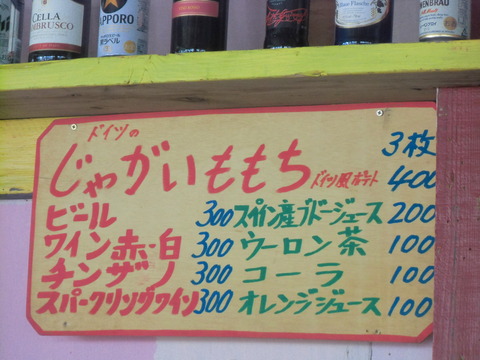 CELLA
LAMBRUSCO
SAPPORO
黒ラベル
LÖWENBRÄU
ドイツの
じゃがいももち ドイツ風ポテト 3枚 400
ビール 300 スペイン産ブドージュース 200
ワイン赤・白 300 ウーロン茶 100
チンザノ 300 コーラ 100
スパークリングワイン 300 オレンジジュース 100